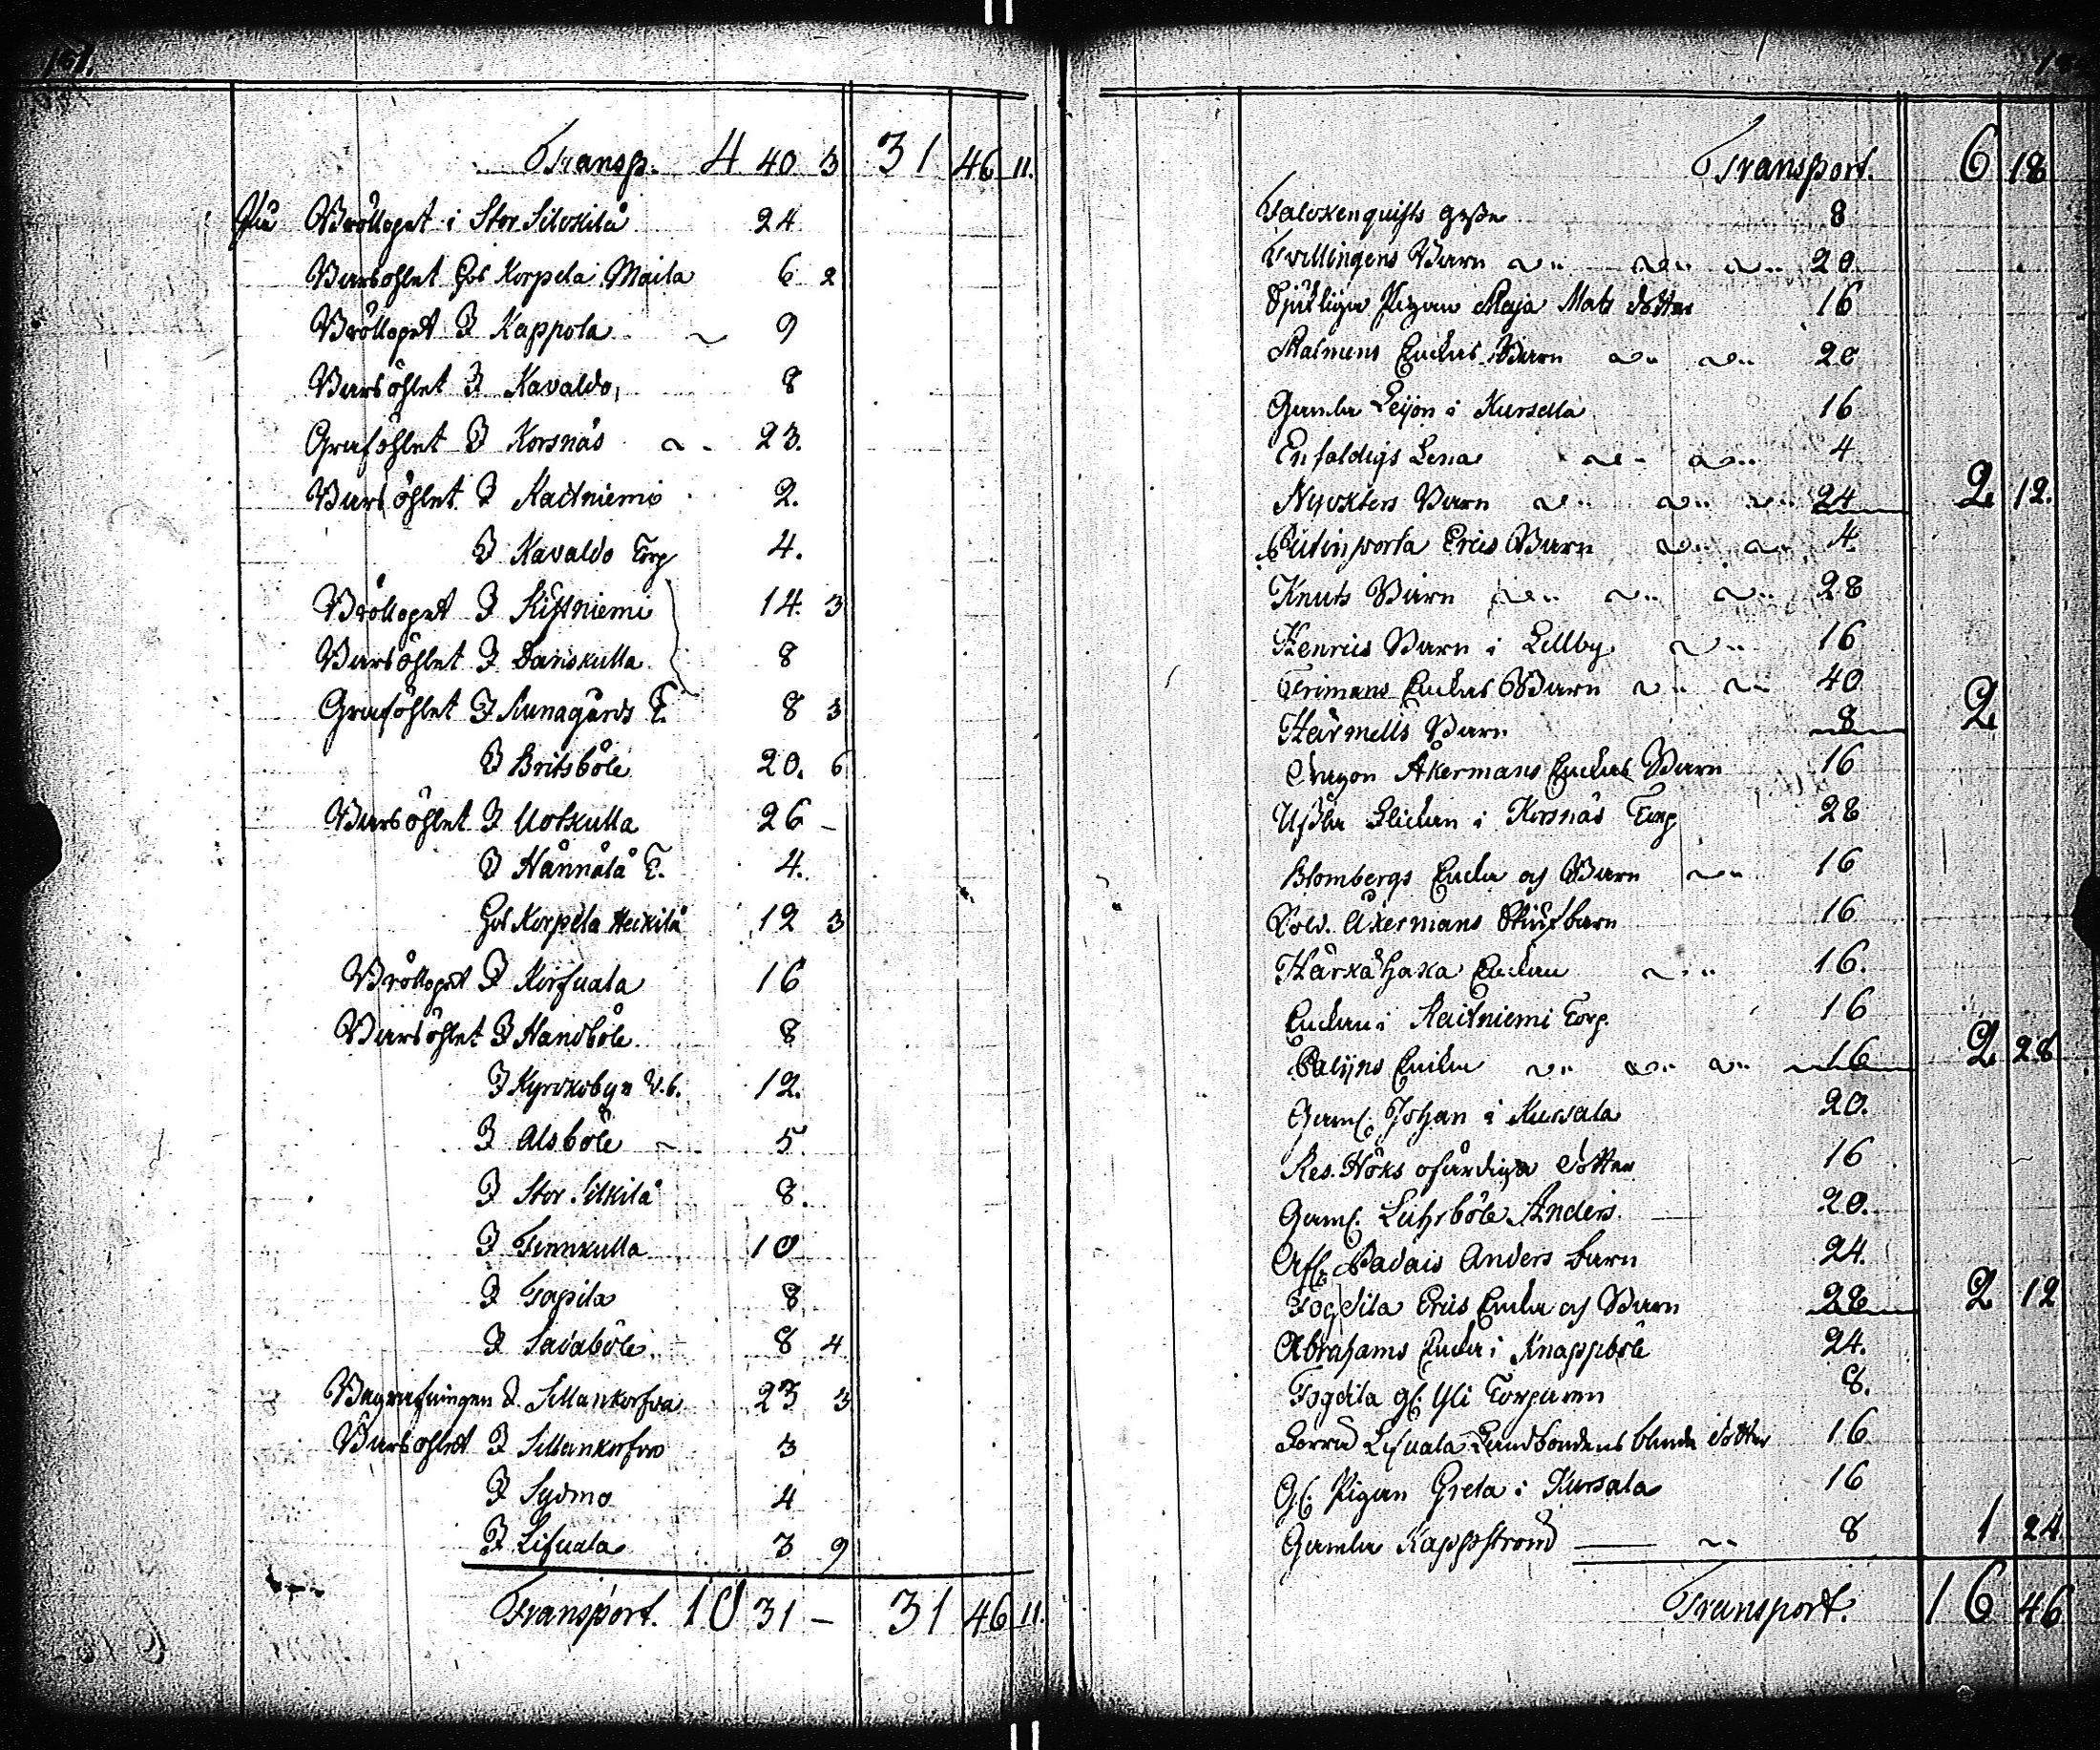 Transp. 4 40 3 31 46 11.
Bröllopet i Stor Silckilä 24
Barsöhlet hos Korpela Maila 6 2
Bröllopet I Kappola 9
Barsöhlet I Kavaldo, 8
Graföhlet I Korsnäs 23.
Barsöhlet I Raitniemi 2.
I Kavaldo Torp 4.
Bröllopet I Kistniemi 14. 3
Barsöhlet I Danskulla 8
Graföhlet I Sunagårds T. 8 3
I Britsböle 20. 6
Barsöhlet I Uotkulla 26 -
I Hännälä T. 4.
hos Korpela Heickilä 12 3
Bröllopet I Korsuala 16
Barsöhlet I Handböle 8
I Kyrckobyn 12.
I Alsböle 5.
I Stor Silkilä 8.
I Finnkulla 10
I Tapila 8
I Savaböle 8 4
Begrafningen I Sillankorfva 23 3
Barsöhlet I Sillankorfva 3
I Sydmo 4
I Lisuala 3 9
Transport. 10 31 - 31 46 11.
Transport. 6 18
8
Tvillingens Barn 20
Sjukliga Pigan Maja Mats dotter 16
Malmens Enckas Barn 20
Gamla Leijon i Kursela 16
Enfaldigs Lena 4
Nyckters Barn 24 2 12.
Erics Barn 4.
Knuts Barn 28
Henrics Barn i Lillby 16
Grimans Enckas Barn 40
Härmells Barn 8 2
Åkermans Enckas Barn 16
Usla Flickan i Korsnäs Torp 28
Blombergs Encka och Barn 16
Sold. Åkermans Stiufbarn 16
Härkähaka Enckan 16.
Enckan i Raitniemi Torp. 16
Palijns Encka 16 2 28
Gaml. Johan i Kursala 20.
Res. Höks ofärdiga dotter 16
Gaml. Lahrböle Anders 20.
Afl. Badais Anders barn 24.
Fogdila Erics Encka och Barn 28 2 12
Abrahams Encka i Knappböle 24.
Fogdila gl. Torparen 8.
Lisuala Landbondens blinda dotter 16
Gl. Pigan Greta i Kursala 16
Gamla Kappström 8 1 24
Transport. 16 46